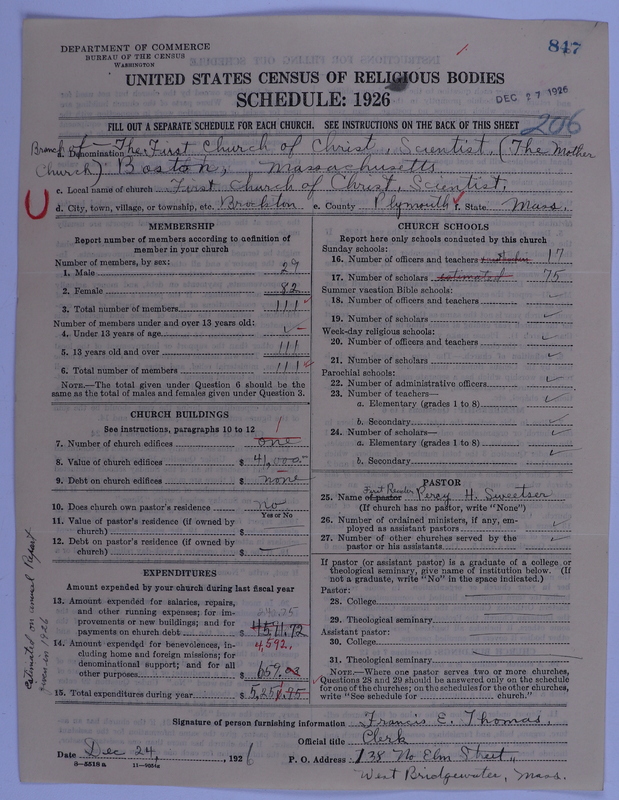 847
DEPARTMENT OF COMMERCE
BUREAU OF THE CENSUS
WASHINGTON
UNITED STATES CENSUS OF RELIGIOUS BODIES
SCHEDULE: 1926
DEC 27 1926
FILL OUT A SEPARATE SCHEDULE FOR EACH CHURCH. SEE INSTRUCTIONS ON THE BACK OF THIS SHEET
206
Branch of
a. Denomination The First Church of Christ, Scientist, (The Mother
Church) Boston, Massachusetts
c. Local name of church First Church of Christ, Scientist,
d. City, town, village, or township, etc. Brockton e. County Plymouth f. State Mass.
MEMBERSHIP
Report number of members according to definition of
member in your church
Number of members, by sex:
1. Male 29
2. Female 82
3. Total number of members 111
Number of members under and over 13 years old:
4. Under 13 years of age
5. 13 years old and over 111
6. Total number of members 111
NOTE.—The total given under Question 6 should be the
same as the total of males and females given under Question 3.
CHURCH BUILDINGS
See instructions, paragraphs 10 to 12
1
7. Number of church edifices one
8. Value of church edifices $ 41,000
9. Debt on church edifices $ none
10. Does church own pastor's residence no
Yes or No
11. Value of pastor's residence (if owned by
church) $
12. Debt on pastor's residence (if owned by
church) $
EXPENDITURES
Amount expended by your church during last fiscal year
13. Amount expended for salaries, repairs,
and other running expenses; for im-
provements or new buildings; and for
payments on church debt $ 4591.72
4,592.
14. Amount expended for benevolences, in-
cluding home and foreign missions; for
denominational support; and for all
other purposes $
15. Total expenditures during year $
Estimated on annual Report
given in 1926
CHURCH SCHOOLS
Report here only schools conducted by this church
Sunday schools:
16. Number of officers and teachers 17
17. Number of scholars estimated 75
Summer vacation Bible schools:
18. Number of officers and teachers
19. Number of scholars
Week-day religious schools:
20. Number of officers and teachers
21. Number of scholars
Parochial schools:
22. Number of administrative officers
23. Number of teachers—
a. Elementary (grades 1 to 8)
b. Secondary
24. Number of scholars—
a. Elementary (grades 1 to 8)
b. Secondary
PASTOR
First Reader
25. Name of pastor Percy H. Sweetser
(If church has no pastor, write "None")
26. Number of ordained ministers, if any, em-
ployed as assistant pastors
27. Number of other churches served by the
pastor or his assistants
If pastor (or assistant pastor) is a graduate of a college or
theological seminary, give name of institution below. (If
not a graduate, write "No" in the space indicated.)
Pastor:
28. College
29. Theological seminary
Assistant pastor:
30. College
31. Theological seminary
NOTE.—Where one pastor serves two or more churches,
Questions 28 and 29 should be answered only on the schedule
for one of the churches; on the schedules for the other churches,
write "See schedule for church."
Signature of person furnishing information Francis E. Thomas,
Official title Clerk
Date Dec 24, 1926 P. O. Address 138 No Elm Street,
8—5518a 11—9551a
West Bridgewater, Mass.